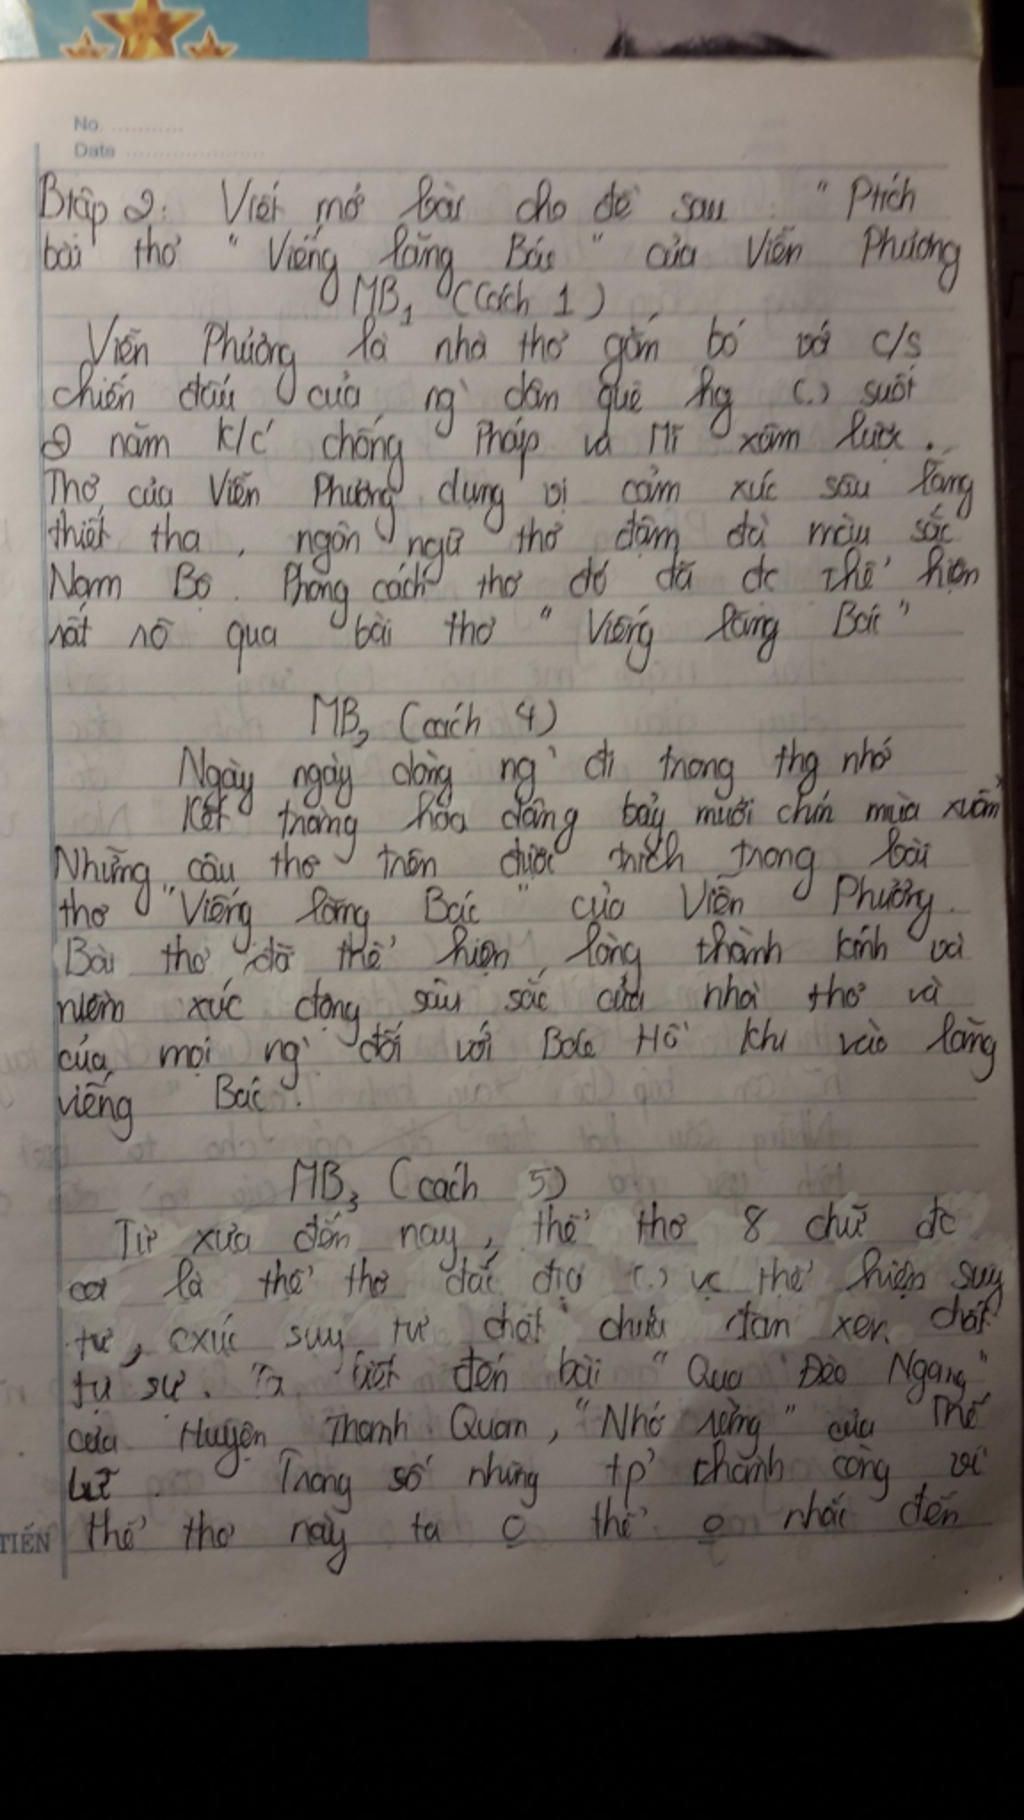 No.
Date
Btập 2: Viết mở bài cho đề sau: "Ptích
bài thơ "Viếng lăng Bác" của Viễn Phương
MB1 (Cách 1)
Viễn Phương là nhà thơ gắn bó với c/s
chiến đấu của ng` dân quê hg (.) suốt
2 năm k/c chống Pháp và Mĩ xâm lược.
Thơ của Viễn Phương dung vị cảm xúc sâu lắng
thiết tha, ngôn ngữ thơ đậm đà màu sắc
Nam Bộ. Phong cách thơ đó đã đc thể hiện
rất rõ qua bài thơ "Viếng lăng Bác"
MB2 (cách 4)
Ngày ngày dòng ng` đi trong thg nhớ
Kết tràng hoa dâng bảy mươi chín mùa xuân
Những câu thơ trên được trích trong bài
thơ "Viếng lăng Bác" của Viễn Phương.
Bài thơ đã thể hiện lòng thành kính và
niềm xúc động sâu sắc của nhà thơ và
của mọi ng` đối với Bác Hồ khi vào lăng
viếng Bác.
MB3 (cách 5)
Từ xưa đến nay, thể thơ 8 chữ đc
coi là thể thơ đắc địa (.) vc thể hiện suy
tư, cxúc suy tư chất chứa đan xen chất
tự sự. Ta biết đến bài "Qua Đèo Ngang"
của Huyện Thanh Quan, "Nhớ rừng" của Thế
Lữ. Trong số những tp' thành công với
thể thơ này ta o thể o nhắc đến
TIẾN